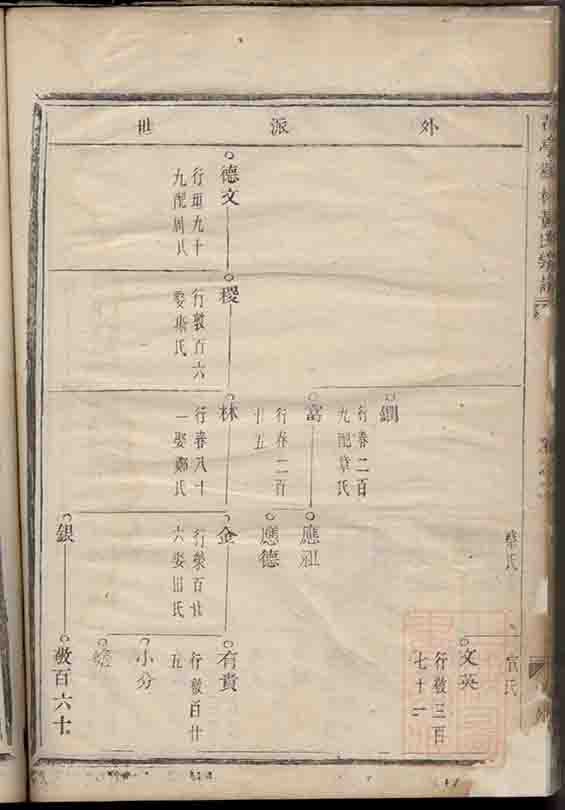 外派世
黃氏宗譜
蔡氏
官氏
文英
行敬三百
七十二
釧
行春二百
九配章氏
富
行春二百
十五
應祖
應德
德文
行垣九十
九配周氏
稷
行敬百六
娶蔡氏
林
行春八十
一娶鄭氏
金
行榮百廿
六娶田氏
有貴
行敬百廿
五
小分
銀
敬百六十